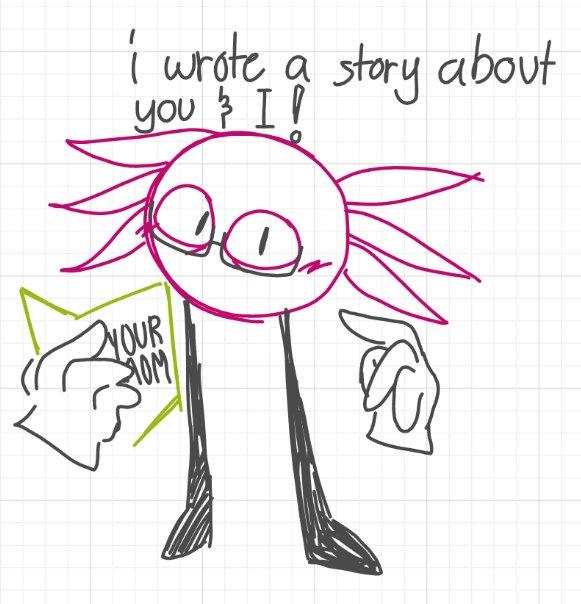 i wrote a story about
you & I!
YOUR
MOM